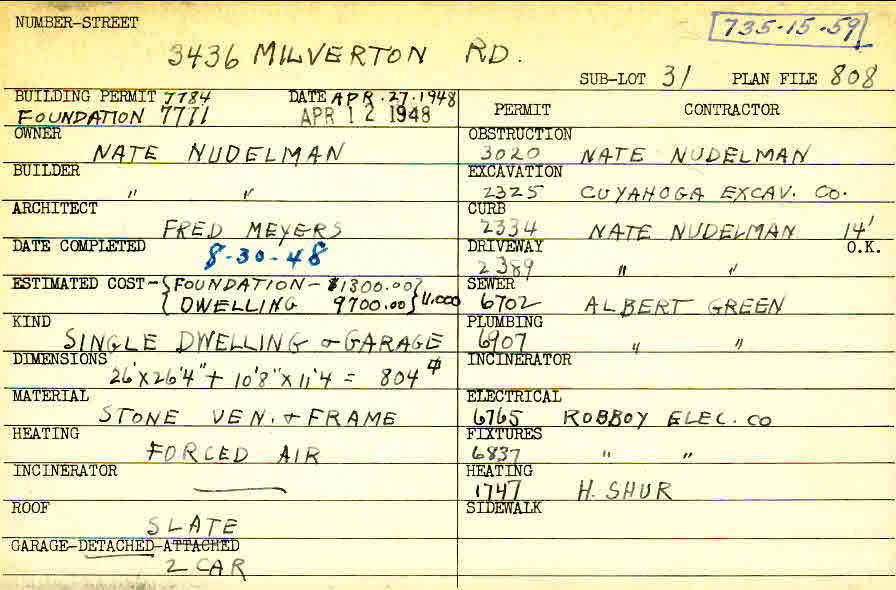 NUMBER-STREET
735-15-59
3436 MILVERTON RD.
SUB-LOT 31 PLAN FILE 808
BUILDING PERMIT 7784 DATE APR. 27. 1948
FOUNDATION 7771 APR 12 1948
OWNER
NATE NUDELMAN
BUILDER
" "
ARCHITECT
FRED MEYERS
DATE COMPLETED
8-30-48
ESTIMATED COST- { FOUNDATION - $1300.00 }
{ DWELLING 9700.00 } 11,000
KIND
SINGLE DWELLING & GARAGE
DIMENSIONS
26'X26'4" + 10'8" X 11'4 = 804 ⌀
MATERIAL
STONE VEN. & FRAME
HEATING
FORCED AIR
INCINERATOR
—
ROOF
SLATE
GARAGE-DETACHED-ATTACHED
2 CAR
PERMIT CONTRACTOR
OBSTRUCTION
3020 NATE NUDELMAN
EXCAVATION
2325 CUYAHOGA EXCAV. CO.
CURB
2334 NATE NUDELMAN 14'
DRIVEWAY O.K.
2389 " "
SEWER
6702 ALBERT GREEN
PLUMBING
6907 " "
INCINERATOR
ELECTRICAL
6765 ROBBOY ELEC. CO
FIXTURES
6837 " "
HEATING
1747 H. SHUR
SIDEWALK